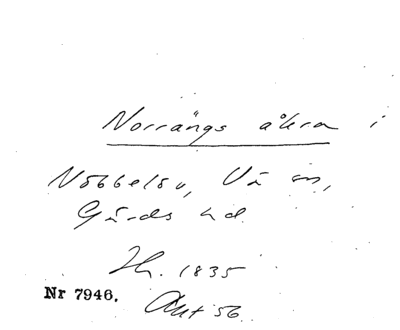 Norrängs åkra i
Nöbbelöv, Vä sn,
Gärds hd
Hr. 1835
Nr 7946.
Akt 56